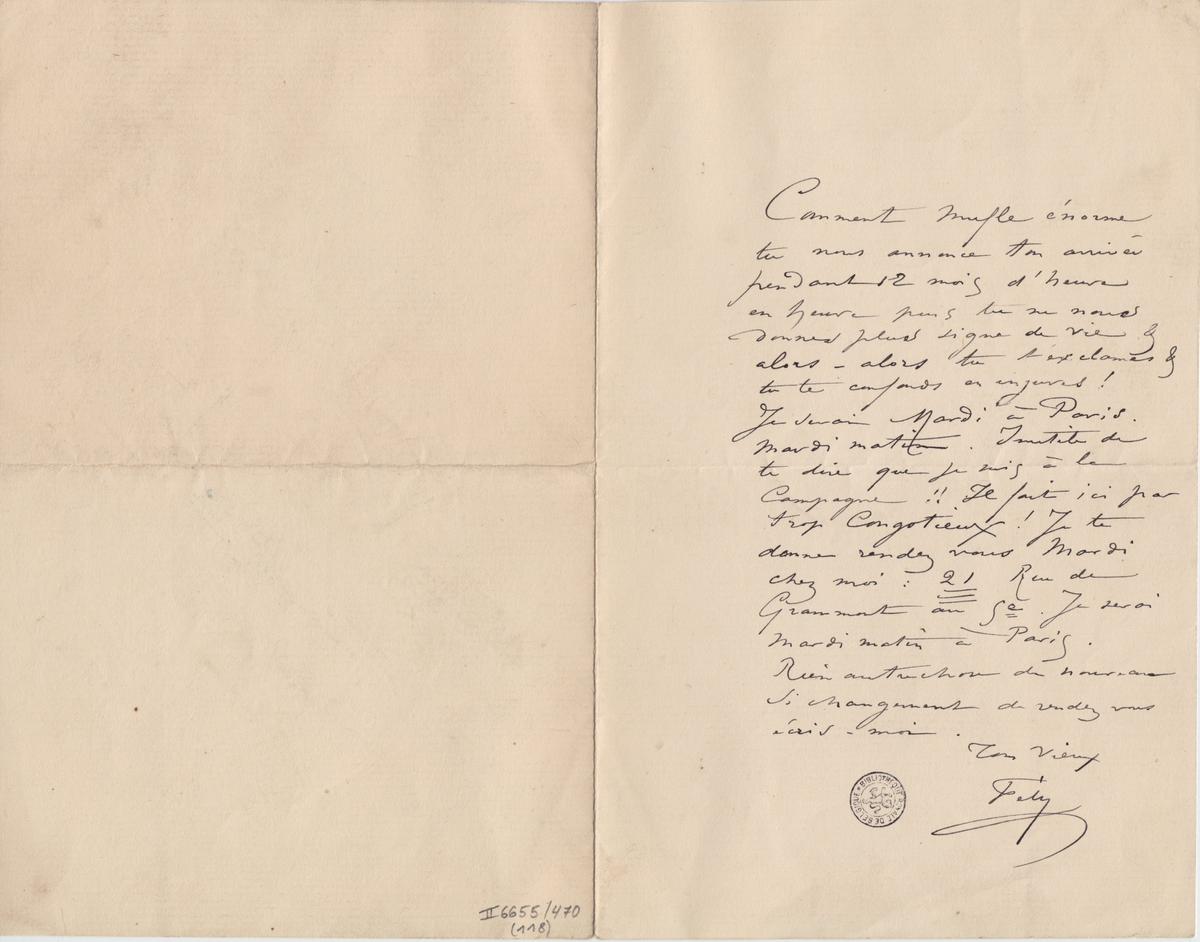 Comment Mufle énorme
tu nous annonce ton arrivée
pendant 12 mois d'heure
en heure puis tu ne nous
donnes plus signe de vie &
alors - alors tu t'exclames &
tu te confonds en injures !
Je serai Mardi à Paris.
Mardi matin. Inutile de
te dire que je suis à la
Campagne !! Il fait ici par
trop Congotieux ! Je te
donne rendez vous Mardi
chez moi : 21 Rue de
Grammont au 5e. Je serai
Mardi matin à Paris.
Rien autre chose de nouveau
Si changement de rendez vous
écris-moi.
Ton Vieux
Fély
BIBLIOTHÈQUE ROYALE DE BELGIQUE
II 6655/470
(118)